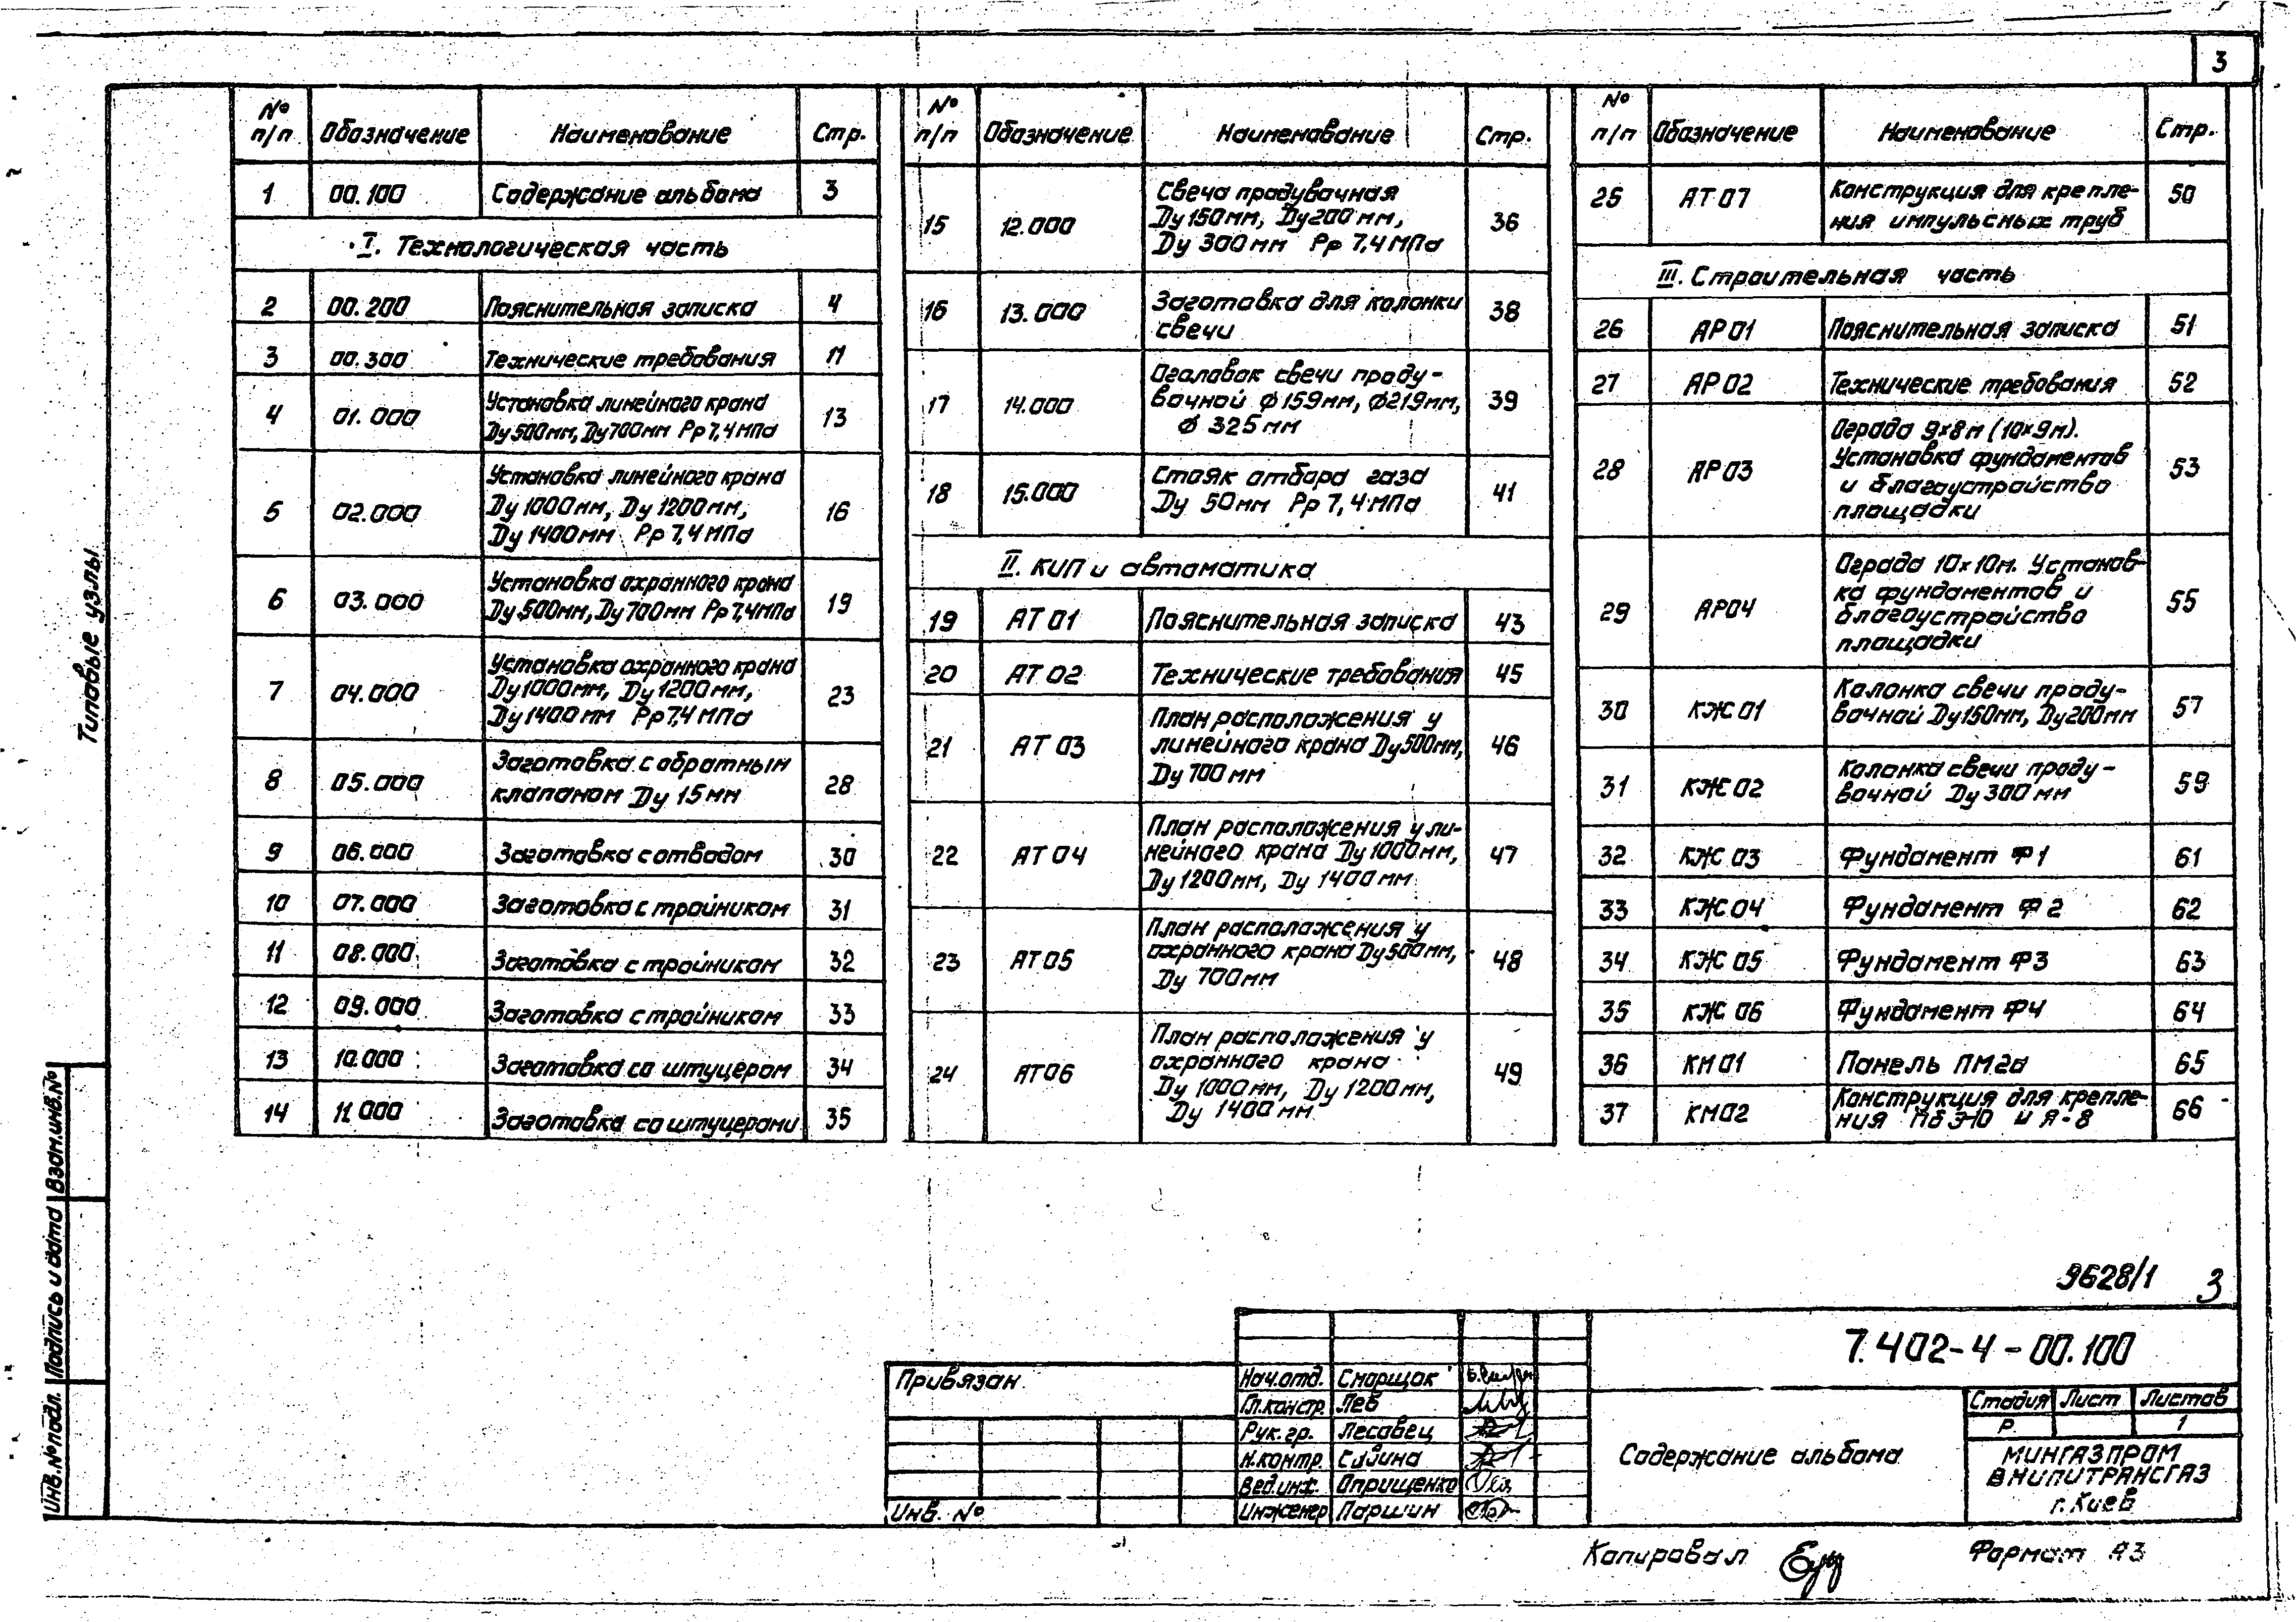 3
№ п/п Обозначение Наименование Стр.
1 00.100 Содержание альбома 3
I. Технологическая часть
2 00.200 Пояснительная записка 4
3 00.300 Технические требования 11
4 01.000 Установка линейного крана
Ду 500мм, Ду 700мм Рр 7,4 МПа 13
5 02.000 Установка линейного крана
Ду 1000мм, Ду 1200мм,
Ду 1400мм Рр 7,4 МПа 16
6 03.000 Установка охранного крана
Ду 500мм, Ду 700мм Рр 7,4 МПа 19
7 04.000 Установка охранного крана
Ду 1000мм, Ду 1200мм,
Ду 1400мм Рр 7,4 МПа 23
8 05.000 Заготовка с обратным
клапаном Ду 15мм 28
9 06.000 Заготовка с отводом 30
10 07.000 Заготовка с тройником 31
11 08.000 Заготовка с тройником 32
12 09.000 Заготовка с тройником 33
13 10.000 Заготовка со штуцером 34
14 11.000 Заготовка со штуцерами 35
№ п/п Обозначение Наименование Стр.
15 12.000 Свеча продувочная
Ду 150мм, Ду 200мм,
Ду 300мм Рр 7,4 МПа 36
16 13.000 Заготовка для колонки
свечи 38
17 14.000 Оголовок свечи проду-
вочной ф159мм, ф219мм,
ф 325мм 39
18 15.000 Стояк отбора газа
Ду 50мм Рр 7,4 МПа 41
II. КИП и автоматика
19 АТ 01 Пояснительная записка 43
20 АТ 02 Технические требования 45
21 АТ 03 План расположения у
линейного крана Ду 500мм,
Ду 700мм 46
22 АТ 04 План расположения у ли-
нейного крана Ду 1000мм,
Ду 1200мм, Ду 1400мм 47
23 АТ 05 План расположения у
охранного крана Ду 500мм,
Ду 700мм 48
24 АТ 06 План расположения у
охранного крана
Ду 1000мм, Ду 1200мм,
Ду 1400мм 49
№ п/п Обозначение Наименование Стр.
25 АТ 07 Конструкция для крепле-
ния импульсных труб 50
III. Строительная часть
26 АР 01 Пояснительная записка 51
27 АР 02 Технические требования 52
28 АР 03 Ограда 9×8м (10×9м).
Установка фундаментов
и благоустройство
площадки 53
29 АР04 Ограда 10×10м. Установ-
ка фундаментов и
благоустройство
площадки 55
30 КЖ 01 Колонка свечи проду-
вочной Ду 150мм, Ду 200мм 57
31 КЖ 02 Колонка свечи проду-
вочной Ду 300мм 59
32 КЖ 03 Фундамент Ф1 61
33 КЖ 04 Фундамент Ф2 62
34 КЖ 05 Фундамент Ф3 63
35 КЖ 06 Фундамент Ф4 64
36 КМ 01 Панель ПМ2а 65
37 КМ 02 Конструкция для крепле-
ния ПбЭ-10 и Я-8 66
Типовые узлы
Взам.инв.№
Подпись и дата
Инв.№ подл.
9628/1 3
7.402-4-00.100
Привязан
Инв. №
Нач.отд. Сморщок
Гл.констр. Лев
Рук.гр. Лесовец
Н.контр.
Вед.инж. Оприщенко
Инженер Паршин
Содержание альбома
Стадия Лист Листов
Р 1
МИНГАЗПРОМ
ВНИПИТРАНСГАЗ
г. Киев
Копировал
Формат А3